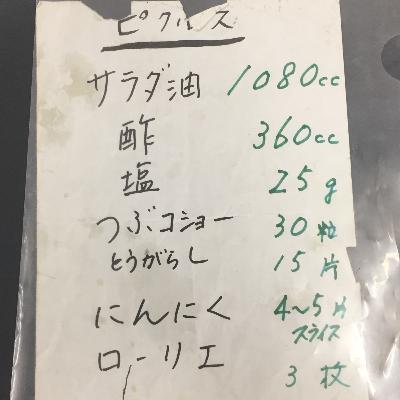 ピクルス
サラダ油 1080cc
酢 360cc
塩 25g
つぶコショー 30粒
とうがらし 15片
にんにく 4〜5片
スライス
ローリエ 3枚